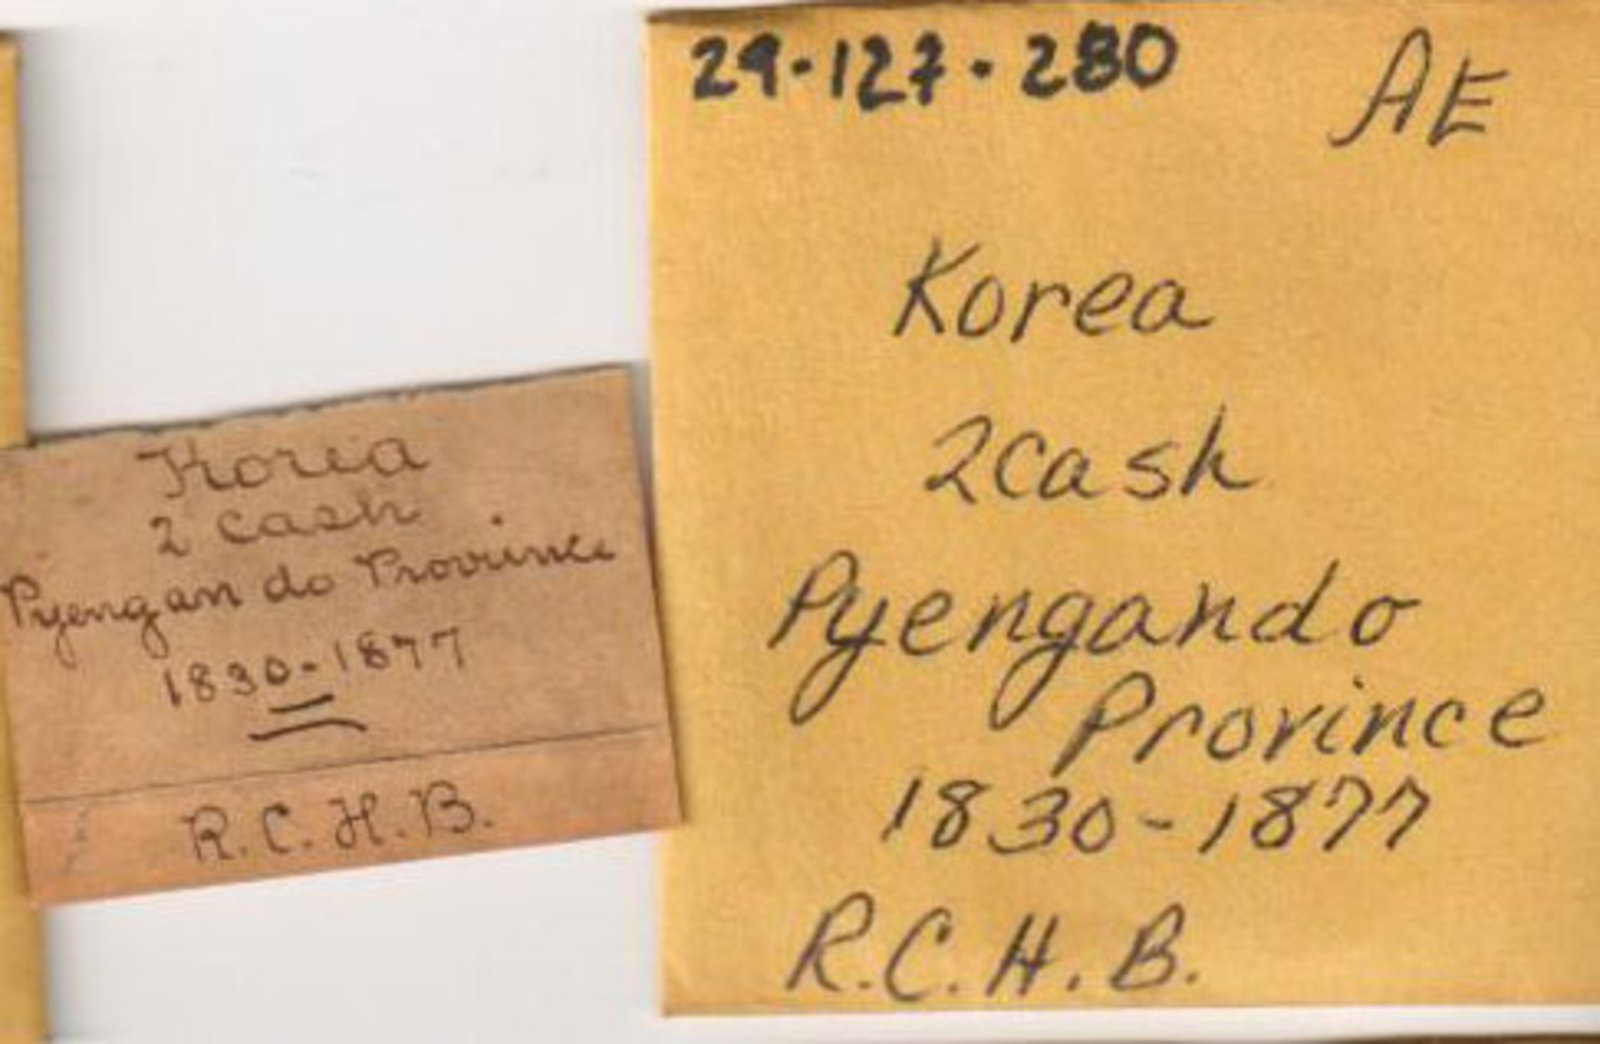 Korea
2 cash
Pyengan do Province
1830-1877
R.C.H.B.
29·127·280
AE
Korea
2 cash
Pyengando
Province
1830-1877
R.C.H.B.